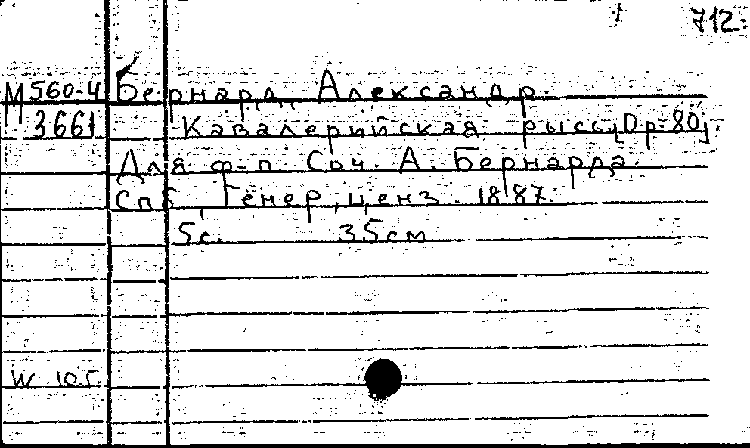 712.
М 560-4 Бернард, Александр.
3661 Кавалерийская рысь, Ор. 80.
Для ф-п. Соч. А. Бернарда.
Спб, Генер, ценз. 1887.
5с. 35см
W 10 г.